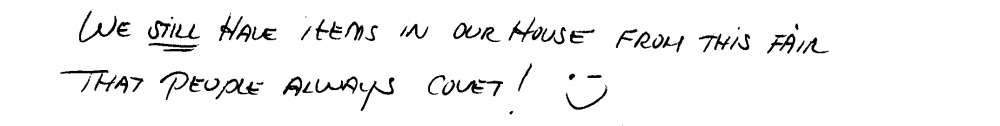 WE STILL HAVE ITEMS IN OUR HOUSE FROM THIS FAIR
THAT PEOPLE ALWAYS COVET!